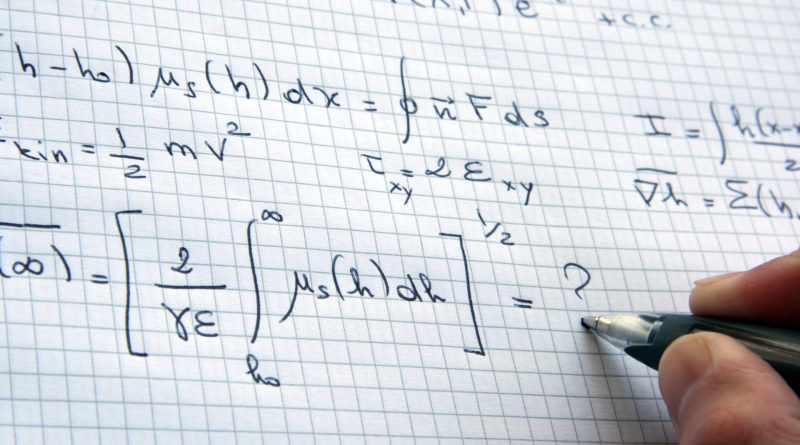 e + c.c.
h - h₀) μₛ(h) dx = ∮ n⃗ F ds
I = ∫ h(x-x
2
kin = 1/2 mv²
τ_xy = 2 ε_xy
∇h = Σ(h,
(∞) = [ 2/γε ∫_{h₀}^{∞} μₛ(h) dh ]^{1/2} = ?